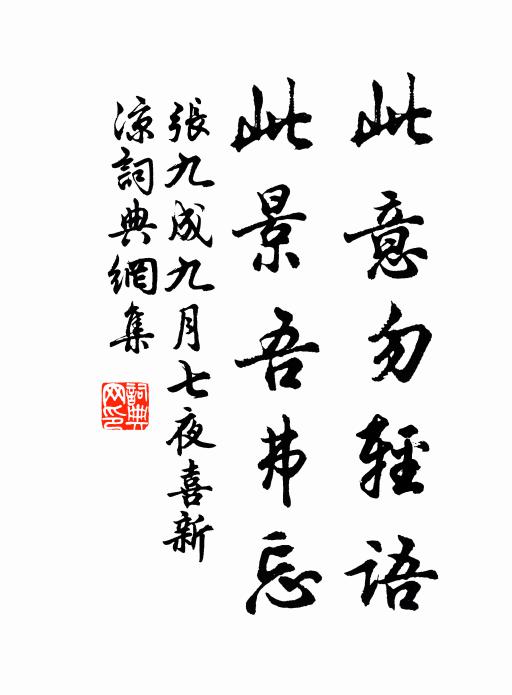 此意勿輕語
此景吾弗忘
張九成九月七夜喜新
涼詞典網集
詞典
网印